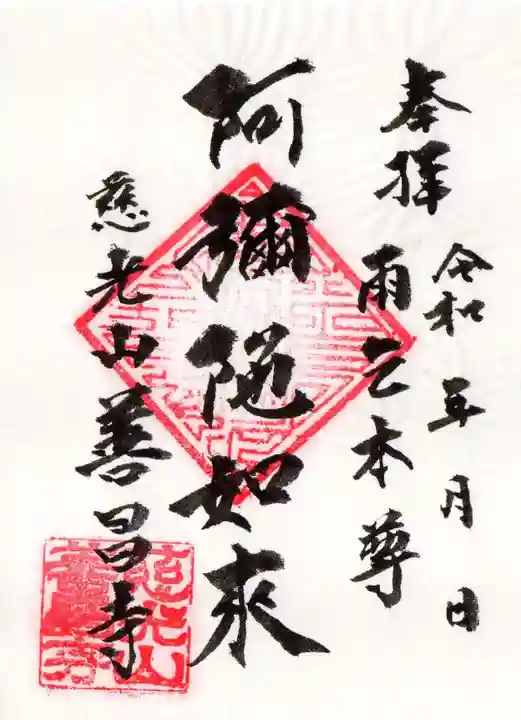 奉拝
令和 年 月 日
雨之本尊
阿彌陀如来
慈光山善昌寺